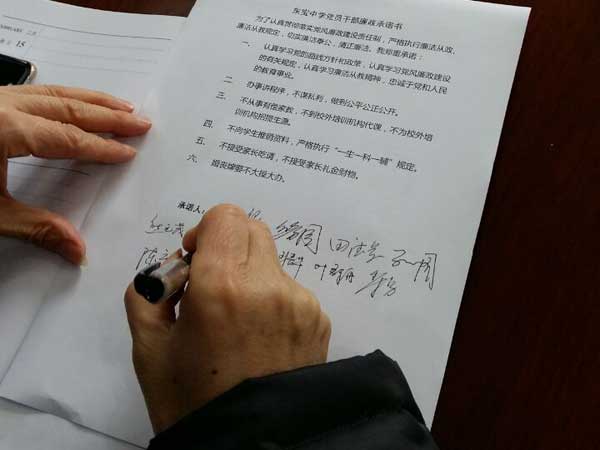 东宝中学党员干部廉政承诺书
为了认真贯彻落实党风廉政建设责任制，严格执行廉洁从政、
廉洁从教规定，切实廉洁奉公，清正廉洁，我郑重承诺：
一、 认真学习党的路线方针和政策，认真学习党风廉政建设
的有关规定，认真学习廉洁从教精神，忠诚于党和人民
的教育事业。
二 办事讲程序，不谋私利，做到公平公正公开。
三、 不从事有偿家教，不到校外培训机构代课，不为校外培
训机构招揽生源。
四、 不向学生推销资料，严格执行“一生一科一辅”规定。
五、 不接受家长吃请，不接受家长礼金财物。
六、 婚丧嫁娶不大操大办。
承诺人：
15